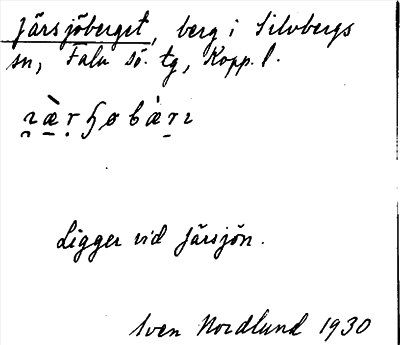 Järsjöberget, berg i Silvbergs
sn, Falu sö. tg, Kopp. l.
Ligger vid Järsjön.
Sven Nordlund 1930